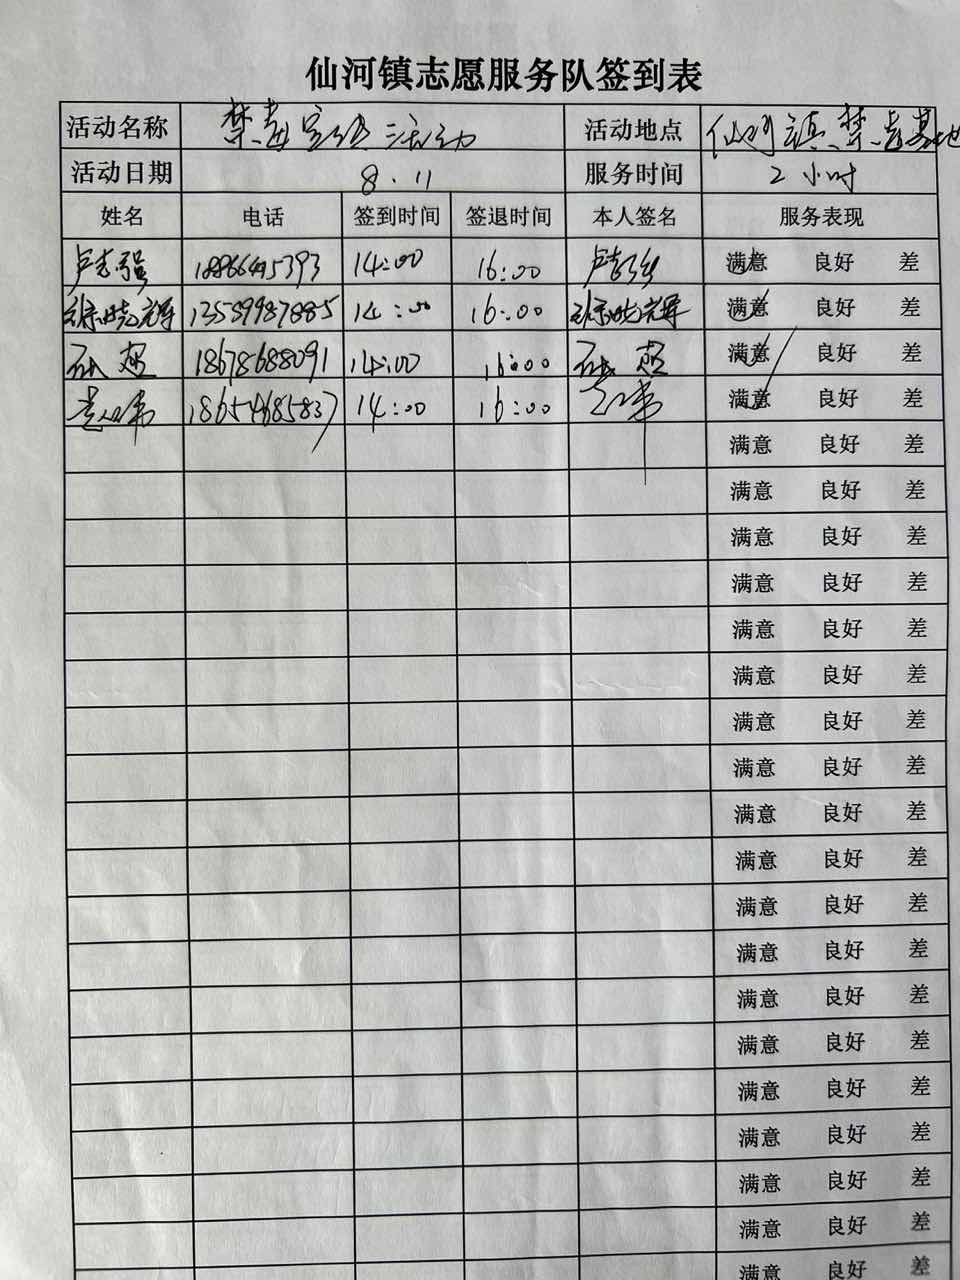 仙河镇志愿服务队签到表
活动名称 禁毒宣传活动 活动地点 仙河镇禁毒基地
活动日期 8.11 服务时间 2小时
姓名 电话 签到时间 签退时间 本人签名 服务表现
卢志强 14:00 16:00 满意 良好 差
徐晓军 13589987885 14:00 16:00 徐晓军 满意 良好 差
超 18678688091 14:00 16:00 超 满意 良好 差
伟 18654685837 14:00 16:00 伟 满意 良好 差
满意 良好 差
满意 良好 差
满意 良好 差
满意 良好 差
满意 良好 差
满意 良好 差
满意 良好 差
满意 良好 差
满意 良好 差
满意 良好 差
满意 良好 差
满意 良好 差
满意 良好 差
满意 良好 差
满意 良好 差
满意 良好 差
满意 良好 差
满意 良好 差
满意 良好 差